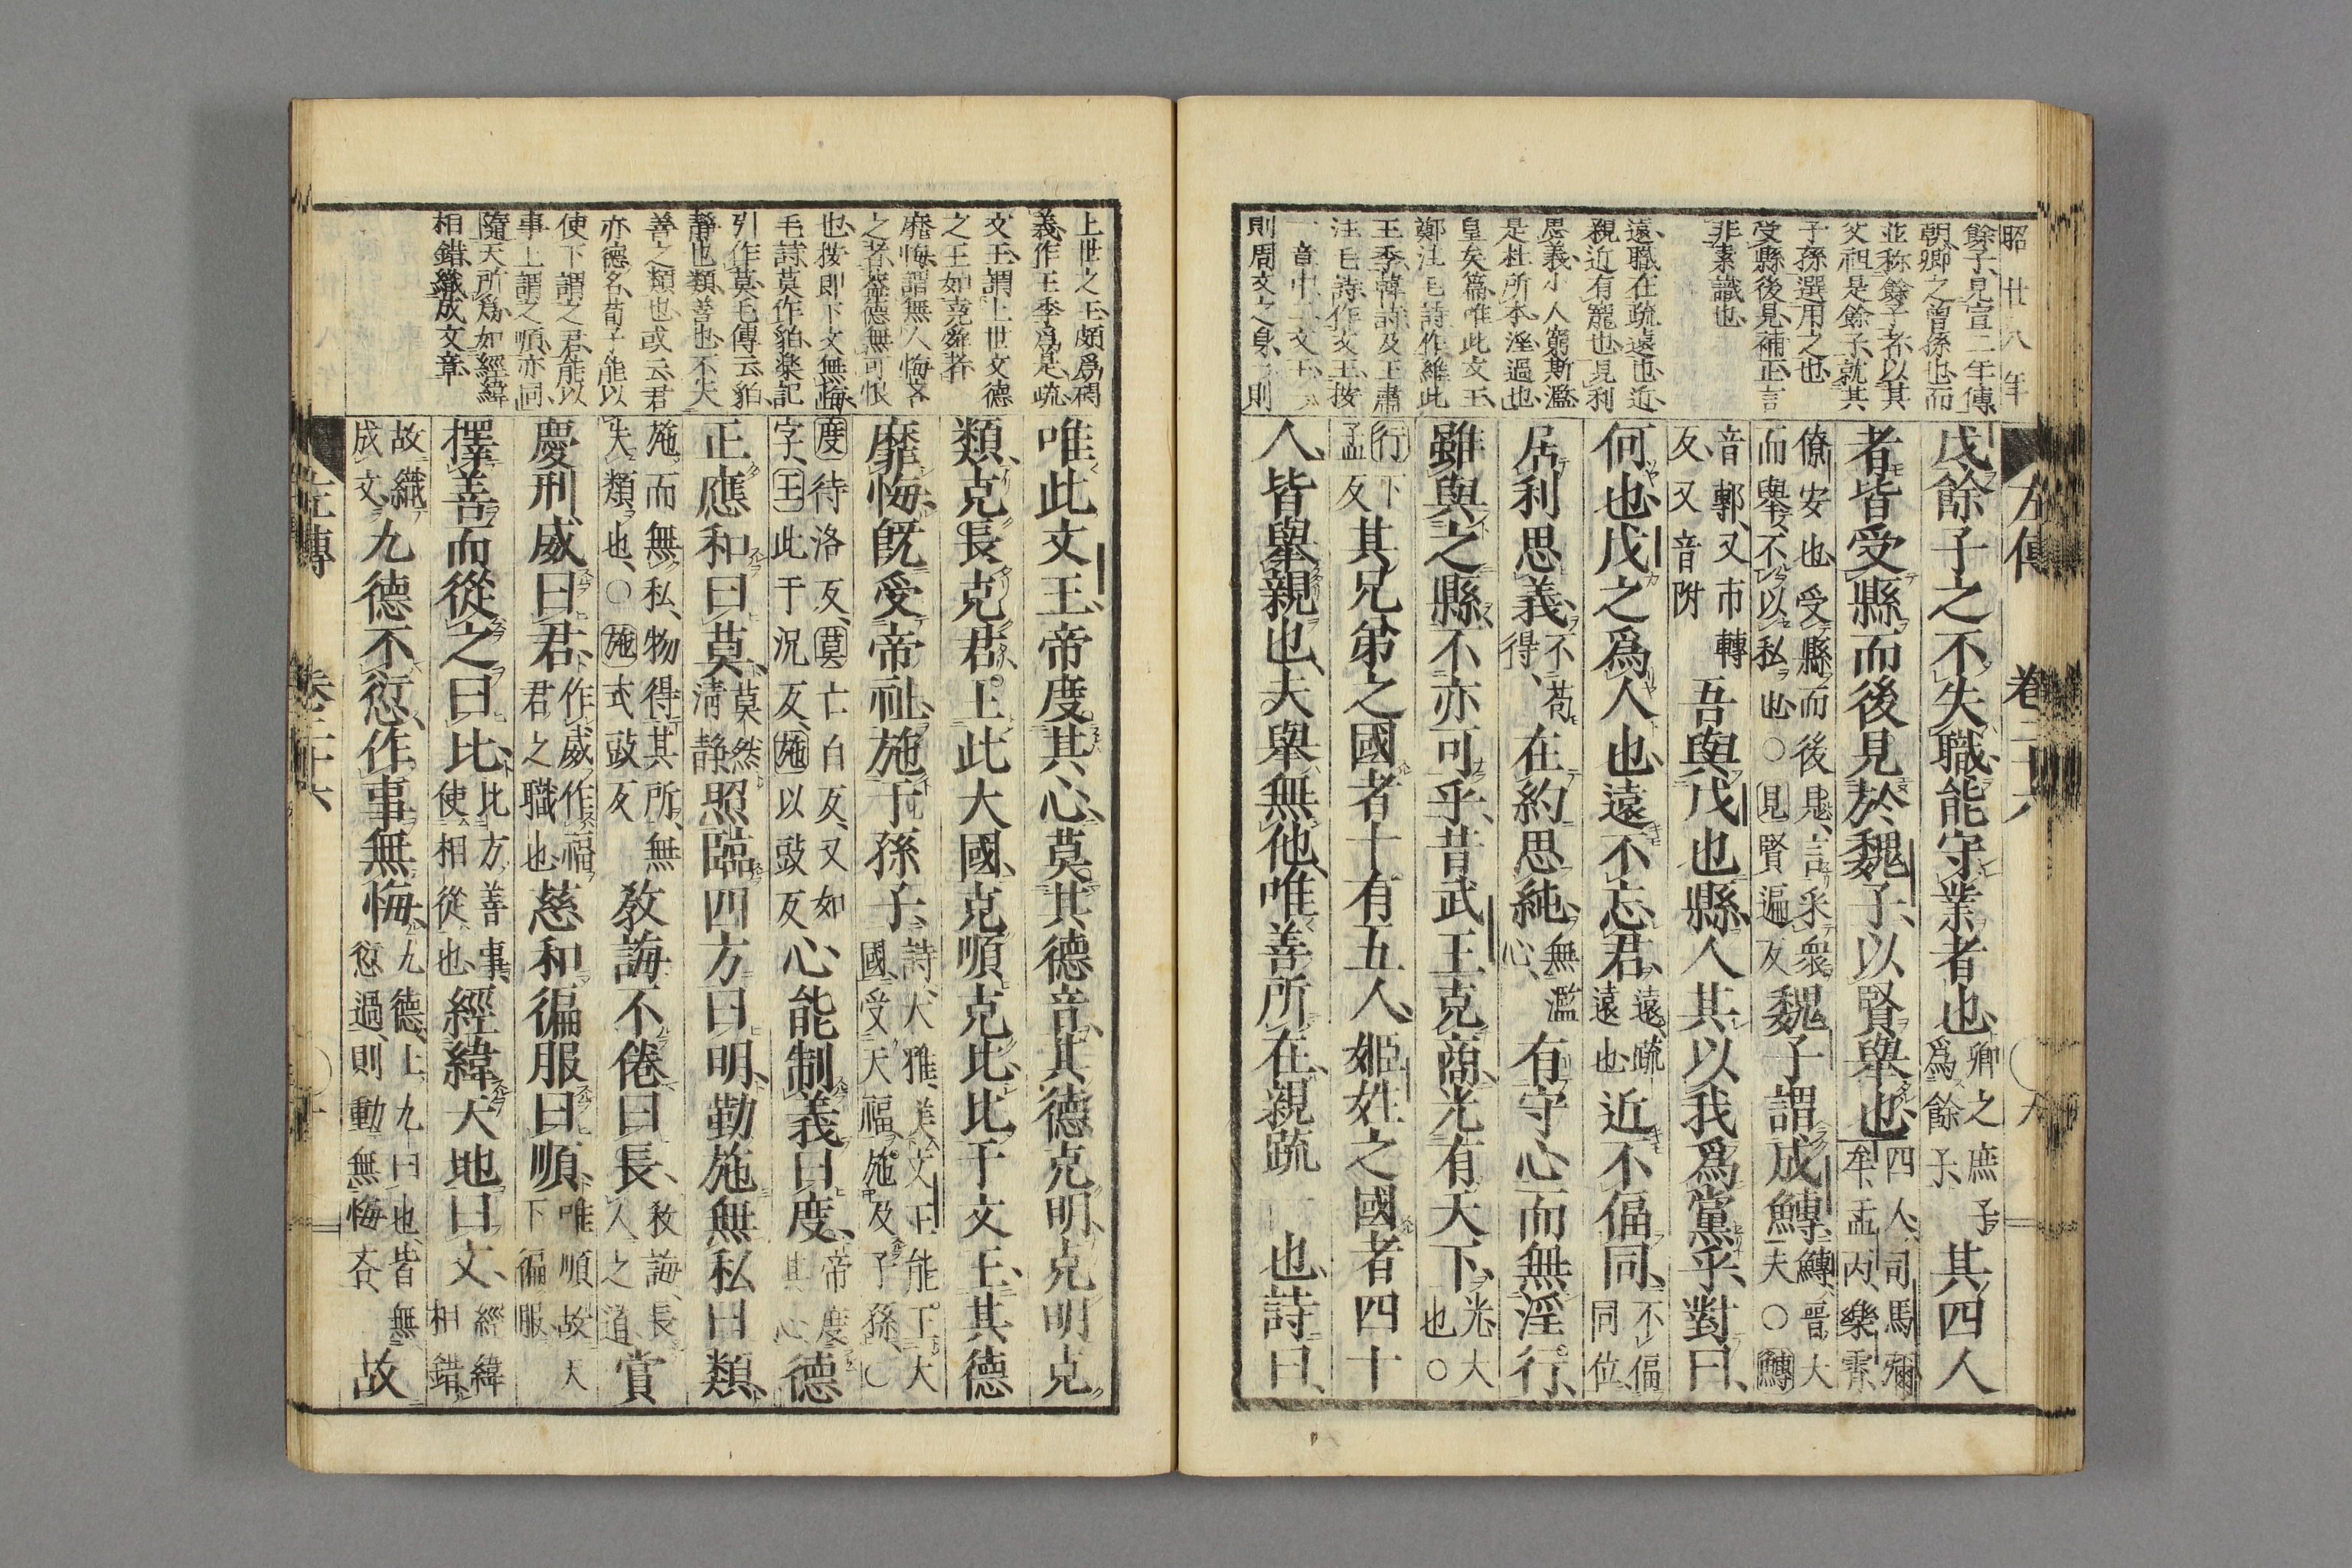 昭廿八年
餘子見宣二年傳
朝卿之曾孫也而
並称餘子者以其
父祖是餘子就其
子孫選用之也
受縣後見補正言
非素識也
遠職在疏遠也近
親近有寵也見利
思義小人窮斯濫
是杜所本淫過也
皇矣篇唯此文王
鄭注毛詩作維此
王季韓詩及王肅
注毛詩作文王按
一章中
則周文之身則
左傳 卷二十六
戊餘子之不失職能守業者也卿之庶子爲餘子其四人
者皆受縣而後見於魏子以賢舉也四人司馬彌牟孟丙樂霄
僚安也受縣而後見言采衆而舉不以私也○見賢遍反魏子謂成鱄鱄晉大夫○鱄
音鄟又市轉反又音附吾與戊也縣人其以我爲黨乎對曰
何也戊之爲人也遠不忘君遠疏遠也近不偪同不偪同位
居利思義不苟得在約思純無濫心有守心而無淫行
雖與之縣不亦可乎昔武王克商光有天下光大也○
行下孟反其兄弟之國者十有五人姬姓之國者四十
人皆舉親也夫舉無他唯善所在親疏 也詩曰
上世之王頗爲碍
義作王季爲是疏
文王謂上世文德
之王如堯舜者
靡悔謂無人悔吝
之者葢德無可恨
也按即下文無悔
毛詩莫作貊樂記
引作莫毛傳云貊
靜也類善也不失
善之類也或云君
亦德名荀子能以
使下謂之君能以
事上謂之順亦同
隨天所爲如經緯
相錯織成文章
唯此文王帝度其心莫其德音其德克明克明克
類克長克君王此大國克順克比比于文王其德
靡悔旣受帝祉施于孫子詩大雅美文王能王大國受天福施及子孫○
度待洛反莫亡白反又如字王此于况反施以豉反心能制義曰度帝度其心德
正應和曰莫莫然淸靜照臨四方曰明勤施無私曰類
施而無私物得其所無失類也○施式豉反教誨不倦曰長教誨長人之道賞
慶刑威曰君作威作福君之職也慈和徧服曰順唯順故天下徧服
擇善而從之曰比比方善事使相從也經緯天地曰文經緯相錯
故織成文九德不愆作事無悔九德上九曰也皆無愆過則動無悔吝故
左傳 卷二十六